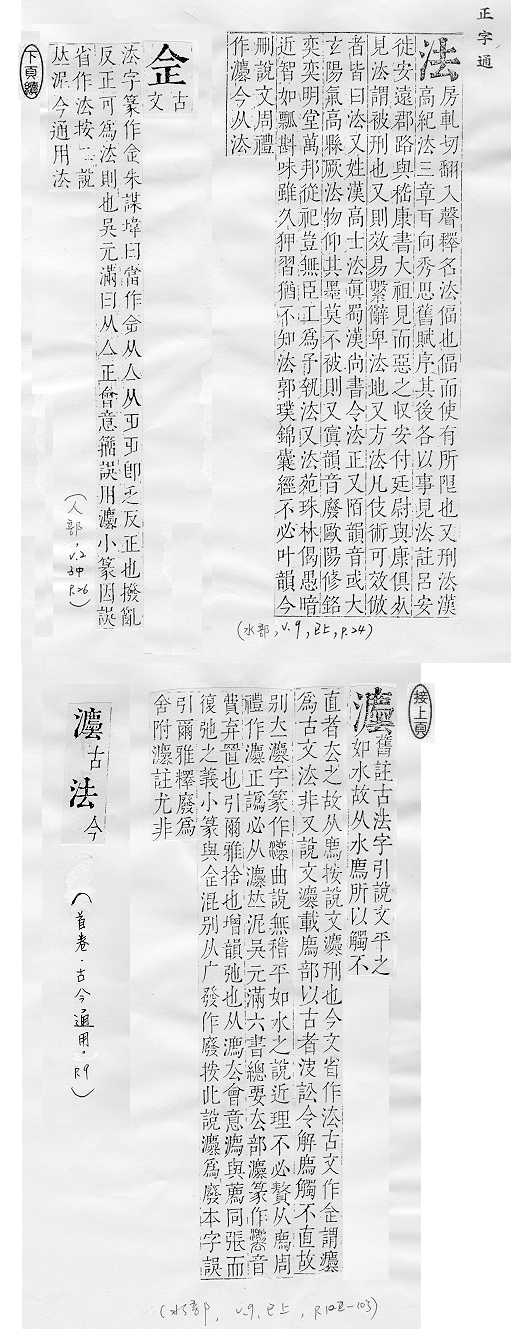 正字通
法
房軋切翻入聲釋名法偪也偪而使有所限也又刑法漢
高紀法三章耳向秀思舊賦序其後各以事見法註呂安
徙安遠郡路與嵇康書大祖見而惡之収安付廷尉與康俱死
見法謂被刑也又則效易繫辭卑法地又方法凡伎術可效倣
者皆曰法又姓漢高士法眞蜀漢尚書令法正又陌韻音或大
玄陽氣高縣厥法物仰其墨莫不被則又寘韻音廢歐陽修銘
奕奕明堂萬邦從祀豈無臣工爲予執法又法苑珠林偈愚暗
近智如瓢斟味雖久狎習猶不知法郭璞錦囊經不必叶韻今
刪說文周禮
作灋今从法
(水部,v.9,巳上,P.24)
佱
古文
法字篆作佱朱謀㙔曰當作佱从亼从𤴓𤴓卽乏反正也撥亂
反正可爲法則也吳元滿曰从亼正會意籀誤用灋小篆因誤
省作法按二說
𠀤泥今通用法
(人部,v.2
子中
P.26)
下頁續
接上頁
灋
舊註古法字引說文平之
如水故从水廌所以觸不
直者去之故从廌按說文灋刑也今文省作法古文作佱謂灋
爲古文法非又說文灋載廌部以古者決訟令解廌觸不直故
別厺灋字篆作灋曲說無稽平如水之說近理不必贅从廌周
禮作灋正譌必从灋𠀤泥吳元滿六書總要厺部灋篆作灋音
費弃置也引爾雅捨也增韻弛也从灋厺會意廌與薦同張而
復弛之義小篆與佱混別从广發作廢按此說灋爲廢本字誤
引爾雅釋廢爲
舍附灋註尤非
(水部, v.9,巳上, P.102-103)
灋古
法今
(首卷.古今通用.P.9)